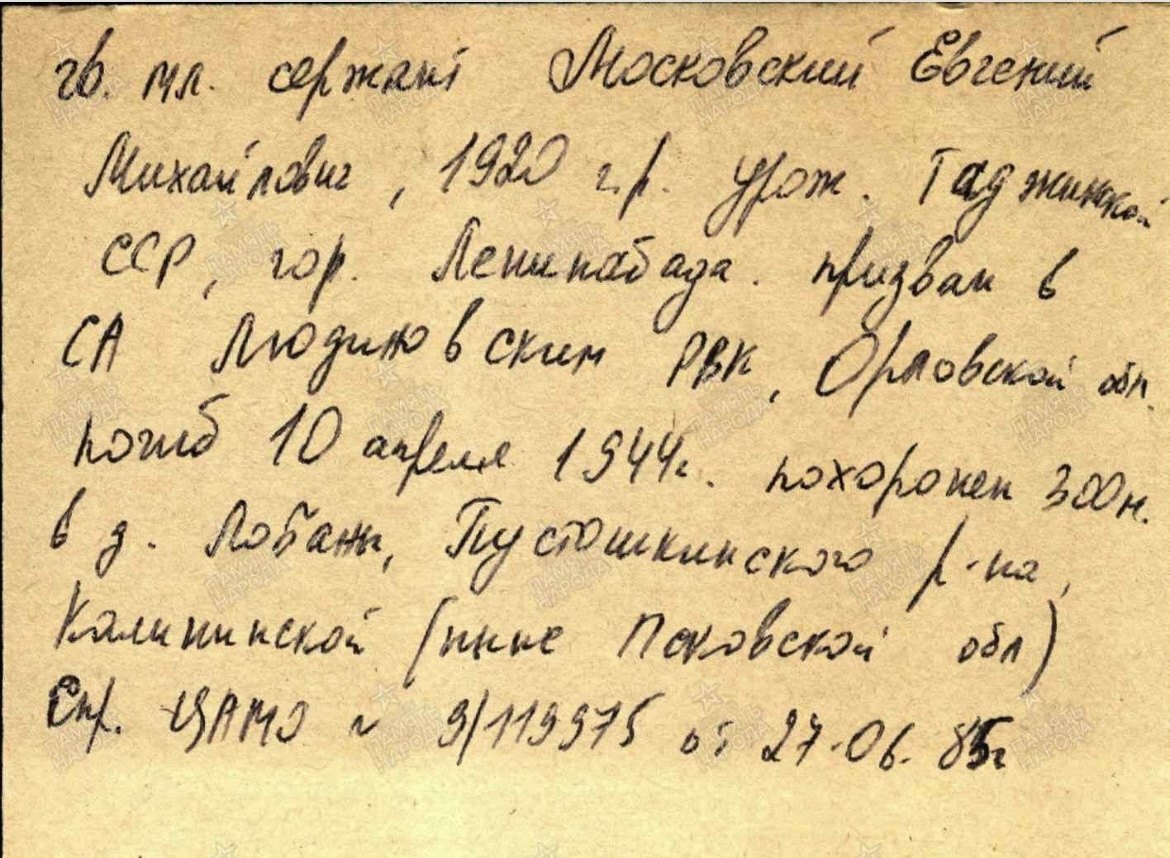 гв. мл. сержант Московский Евгений
Михайлович, 1920 г.р. урож. Таджикской
ССР, гор. Ленинабада. призван в
СА Людиновским РВК, Орловской обл.
погиб 10 апреля 1944г. похоронен 300м.
в д. Лобаны, Пустошкинского р-на,
Калининской (ныне Псковской обл)
Спр. ЦАМО № 9/119975 от 27.06. 85г